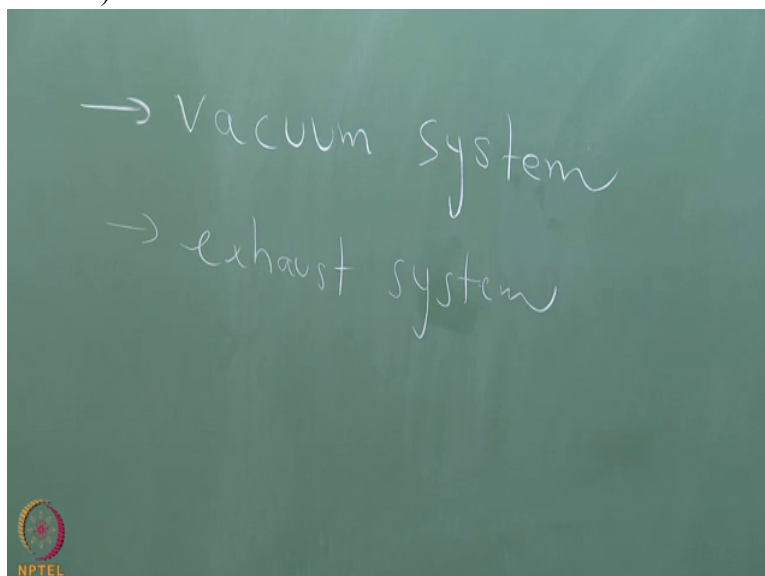 → Vacuum system
→ exhaust system
NPTEL